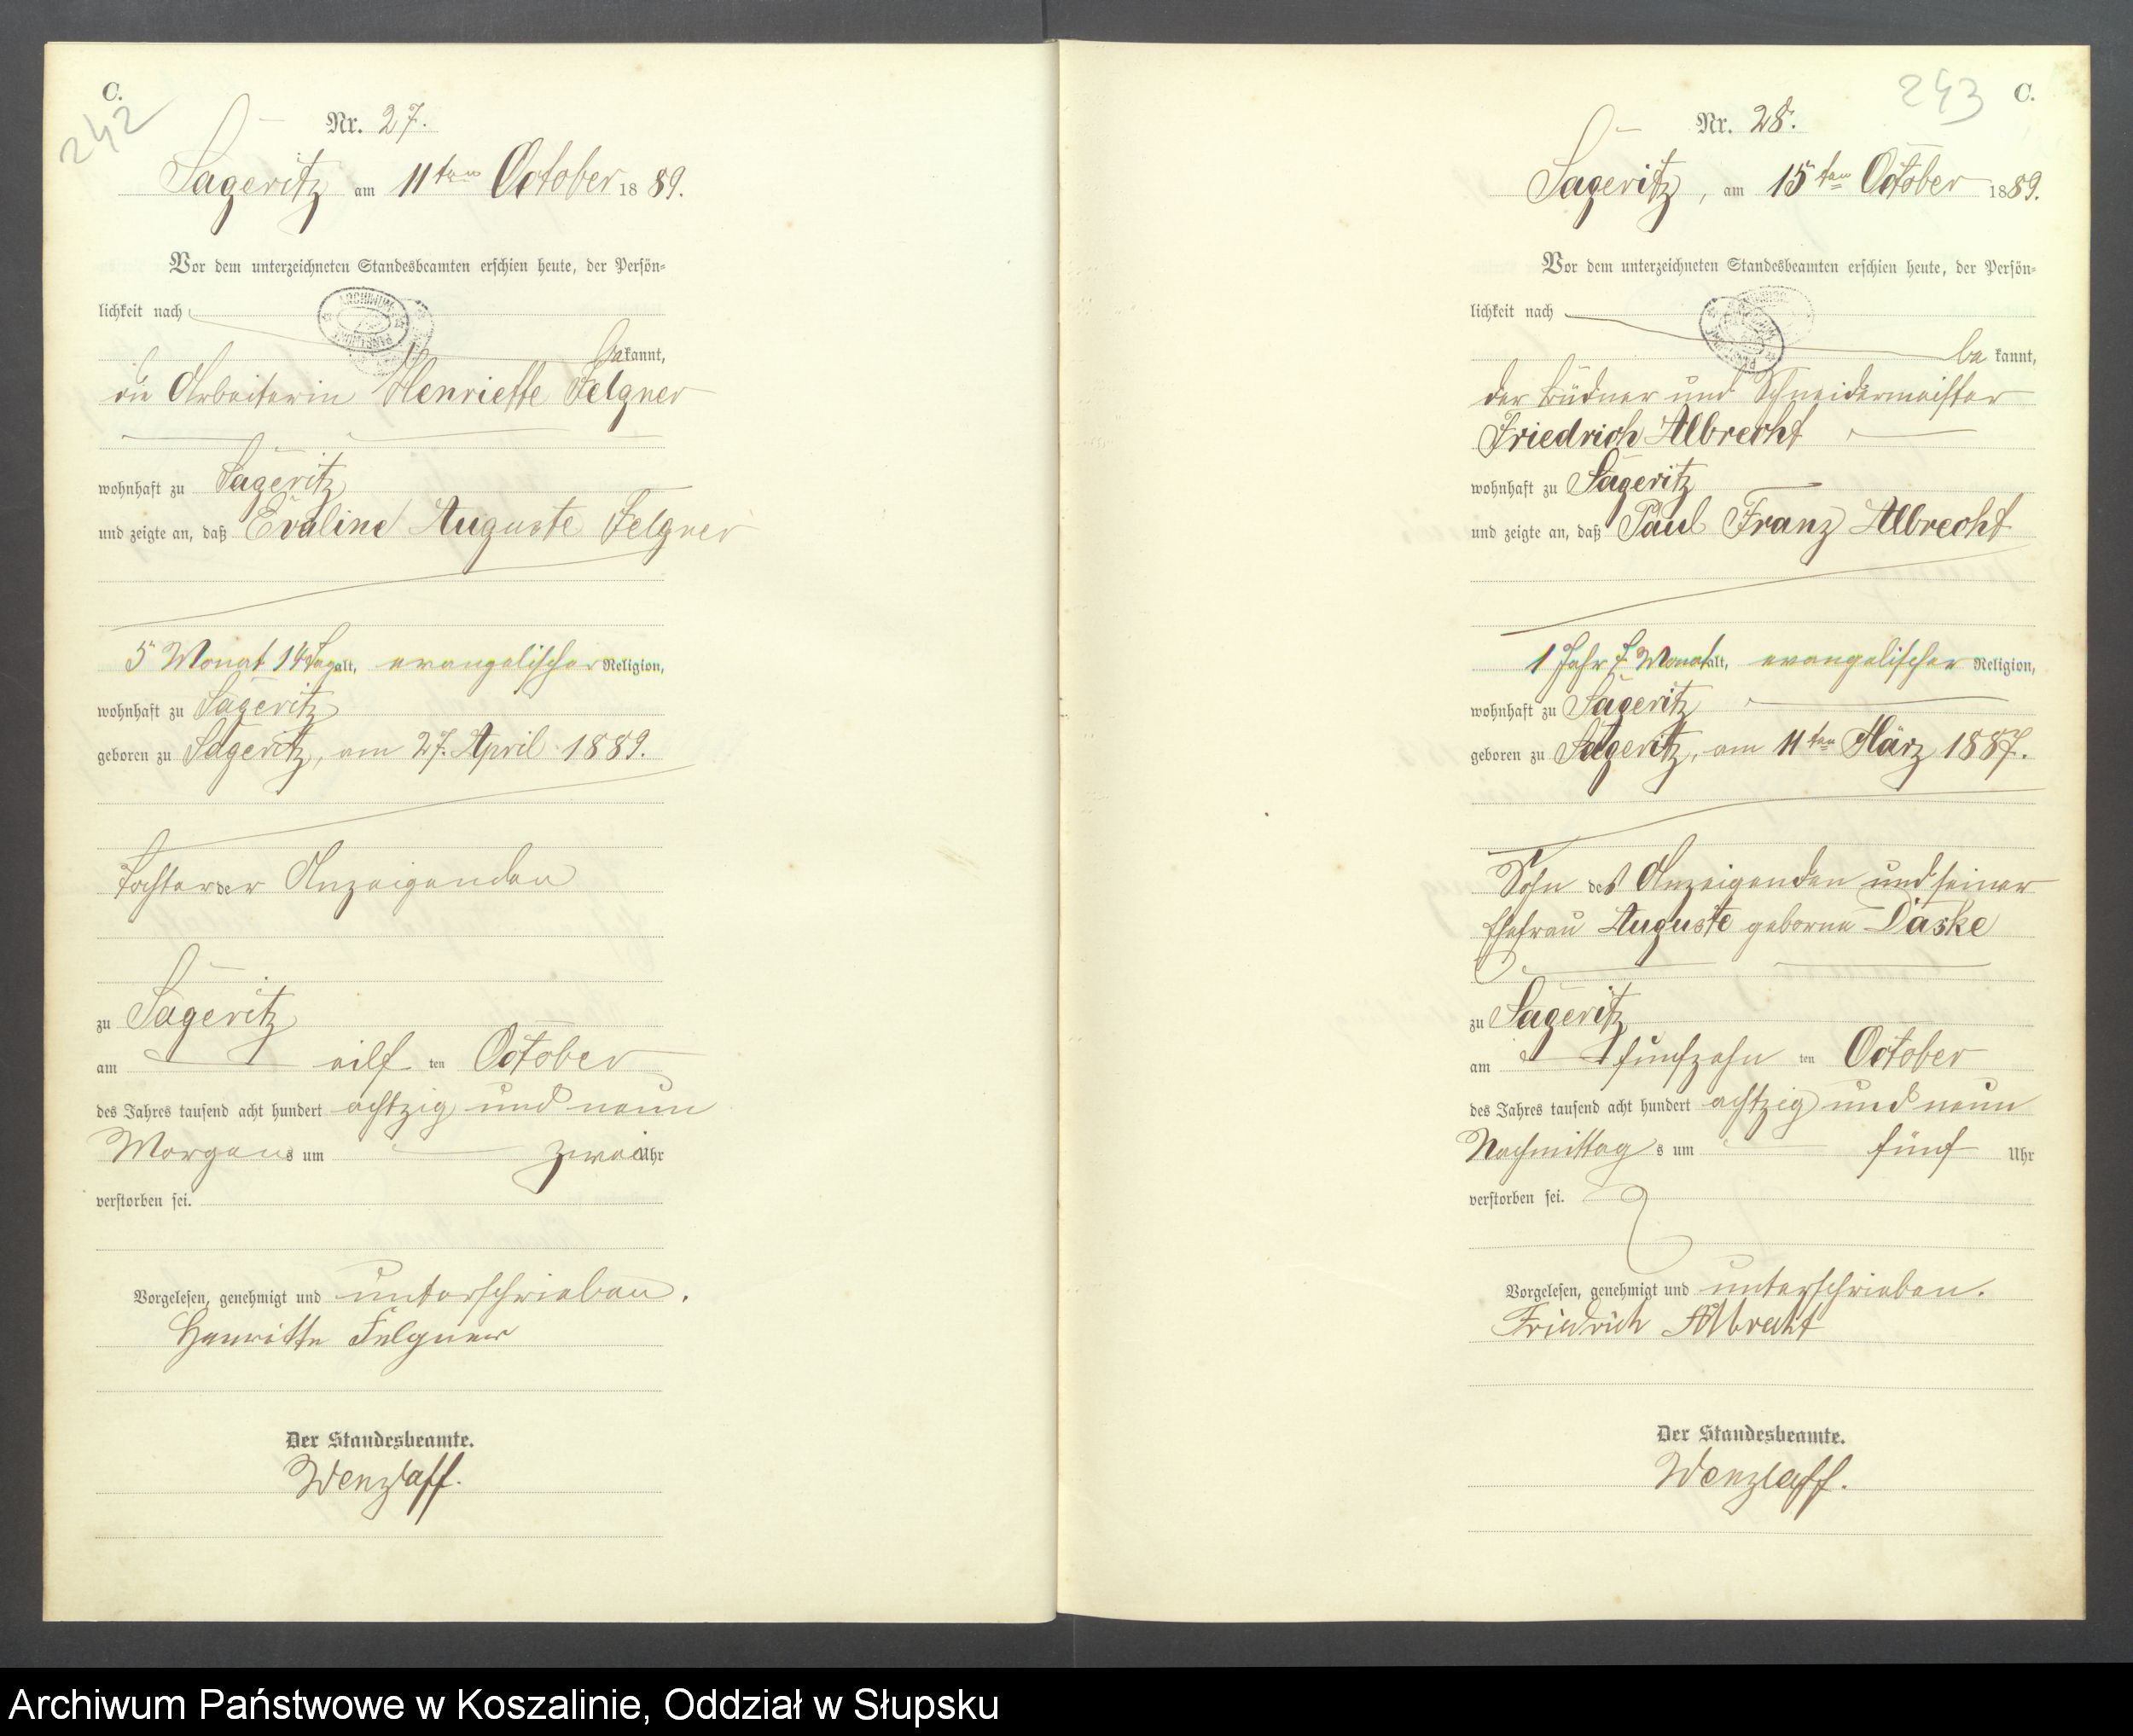 C.
242
Nr. 27.
Sageritz am 11ten October 1889.
Vor dem unterzeichneten Standesbeamten erschien heute, der Persön-
lichkeit nach
bekannt,
die Arbeiterin Henriette Felgner
wohnhaft zu Sageritz
und zeigte an, daß Evaline Auguste Felgner
5 Monat 14 Tag alt, evangelischer Religion,
wohnhaft zu Sageritz
geboren zu Sageritz, am 27. April 1889.
Tochter der Anzeigenden
zu Sageritz
am eilf ten October
des Jahres tausend acht hundert achtzig und neun
Morgens um zwei Uhr
verstorben sei.
Vorgelesen, genehmigt und unterschrieben.
Henriette Felgner
Der Standesbeamte.
Wenzlaff.
243
C.
Nr. 28.
Sageritz, am 15ten October 1889.
Vor dem unterzeichneten Standesbeamten erschien heute, der Persön-
lichkeit nach
bekannt,
der Büdner und Schneidermeister
Friedrich Albrecht
wohnhaft zu Sageritz
und zeigte an, daß Paul Franz Albrecht
1 Jahr 7 Monat alt, evangelischer Religion,
wohnhaft zu Sageritz
geboren zu Sageritz, am 11ten März 1887.
Sohn des Anzeigenden und seiner
Ehefrau Auguste geborne Daske
zu Sageritz
am fünfzehn ten October
des Jahres tausend acht hundert achtzig und neun
Nachmittags um fünf Uhr
verstorben sei.
Vorgelesen, genehmigt und unterschrieben.
Friedrich Albrecht
Der Standesbeamte.
Wenzlaff.
Archiwum Państwowe w Koszalinie, Oddział w Słupsku